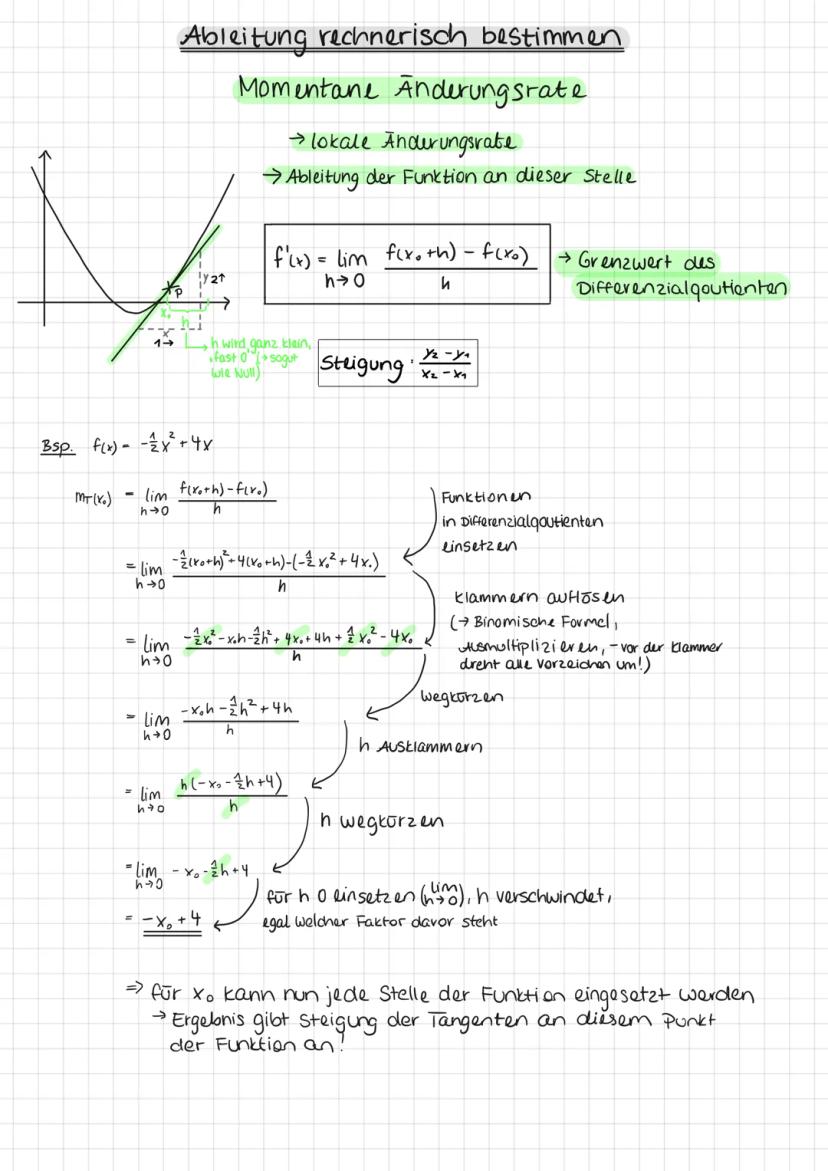 Ableitung rechnerisch bestimmen
Momentane Änderungsrate
→ lokale Änderungsrate
→ Ableitung der Funktion an dieser Stelle
f'(x) = lim h→0 (f(x₀+h) - f(x₀))/h
→ Grenzwert des
Differenzialqoutienten
P
y 2↑
x₀
h
x
1→
h wird ganz klein,
"fast 0" (→ sogut
wie Null)
Steigung: (y₂ - y₁)/(x₂ - x₁)
Bsp. f(x) = -½x² + 4x
m_T(x₀) = lim h→0 (f(x₀+h) - f(x₀))/h
Funktionen
in Differenzialqoutienten
einsetzen
= lim h→0 (-½(x₀+h)² + 4(x₀+h) - (-½x₀² + 4x₀))/h
Klammern auflösen
(→ Binomische Formel,
Ausmultiplizieren, - vor der Klammer
dreht alle Vorzeichen um!)
= lim h→0 (-½x₀² - x₀h - ½h² + 4x₀ + 4h + ½x₀² - 4x₀)/h
wegkürzen
= lim h→0 (-x₀h - ½h² + 4h)/h
h Ausklammern
= lim h→0 h(-x₀ - ½h + 4)/h
h wegkürzen
= lim h→0 - x₀ - ½h + 4
für h 0 einsetzen (lim h→0), h verschwindet,
egal welcher Faktor davor steht
= -x₀ + 4
⇒ für x₀ kann nun jede Stelle der Funktion eingesetzt werden
→ Ergebnis gibt Steigung der Tangenten an diesem Punkt
der Funktion an!